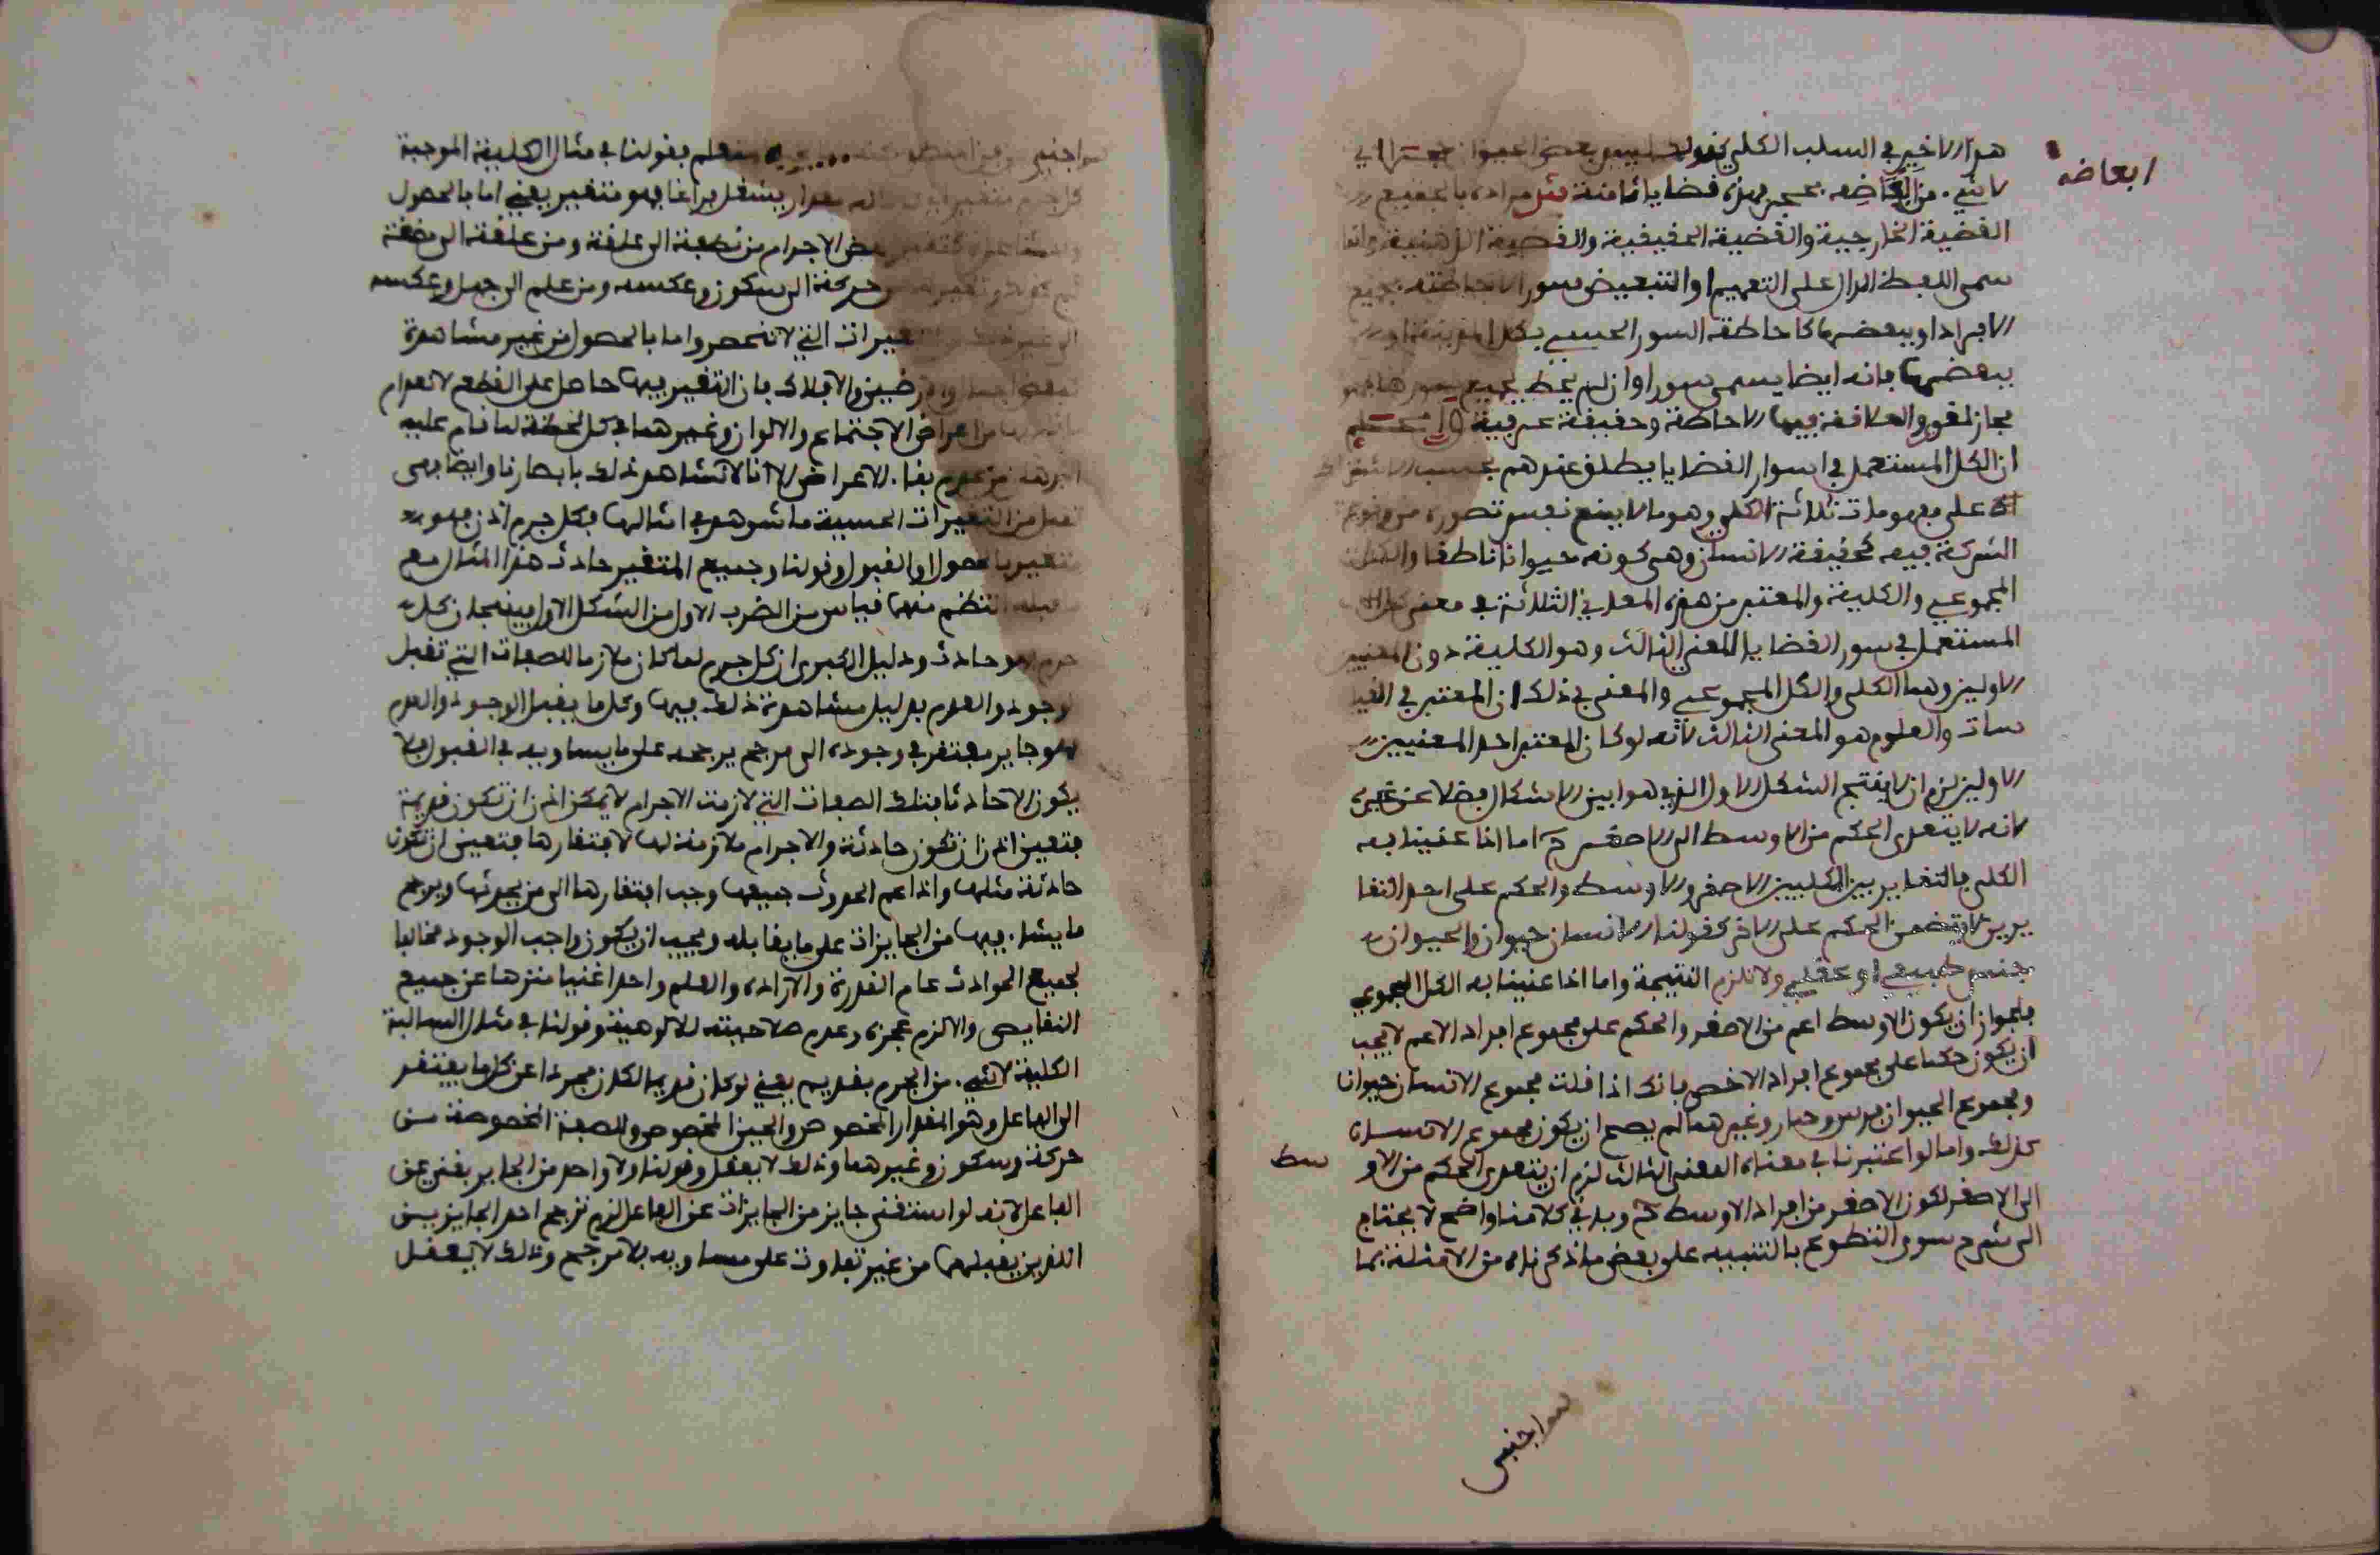 هو الاخير في السلب الكلي كقولنا ليس بعض الحيوان
ابعاضه
لا شيء من ابعاضه بحجر فهذه قضايا ثامنة مثل مراده بالجميع
القضية الخارجية والقضية الحقيقية والقضية الذهنية وانما
سمى اللفظ الدال على التعميم او التبعيض سورا لاحاطته بجميع
الافراد او ببعضها كاحاطة السور الحسي بكل المدينة او
ببعضها فانه ايضا يسمى سورا وان لم يحط بجميع سورها فهو
مجاز لغوي والعلاقة فيها الاحاطة وحقيقة عرفية
ان الكل المستعمل في اسوار القضايا يطلق عندهم بحسب الاشتراك
على مفهومات ثلاثة الكلي وهو ما لا يمنع نفس تصوره من وقوع
الشركة فيه كحقيقة الانسان وهي كونه حيوانا ناطقا والكل
المجموعي والكلية والمعتبر من هذه المعاني الثلاثة في معنى كل
المستعمل في سور القضايا المعنى الثالث وهو الكلية دون المعنيين
الاولين وهما الكلي والكل المجموعي والمعنى في ذلك ان المعتبر في القيا
سات والعلوم هو المعنى الثالث لانه لو كان المعتبر احد المعنيين
الاولين لزم ان لا ينتج الشكل الاول الذي هو ابين الاشكال فضلا عن غيره
لانه لا يتعدى الحكم من الاوسط الى الاصغر اما اذا عنينا به
الكلي فالتغاير بين الكليين الاصغر والاوسط والحكم على احد المتغا
يرين لا يتضمن الحكم على الاخر كقولنا الانسان حيوان والحيوان
جنس طبيعي او عقلي ولا تلزم النتيجة واما اذا عنينا به الكل المجموعي
فلجواز ان يكون الاوسط اعم من الاصغر والحكم على مجموع افراد الاعم لا يجب
ان يكون حكما على مجموع افراد الاخص فانك اذا قلت مجموع الانسان حيوانا
ومجموع الحيوان فرس وحمار وغيرهما لم يصح ان يكون مجموع الانسان
كذلك واما لو اعتبرنا في معناه المعنى الثالث لزم ان يتعدى الحكم من الاو
سط
الى الاصغر لكون الاصغر من افراد الاوسط وباقي كلامنا واضح لا يحتاج
الى شرح سوى التطوع بالتنبيه على بعض ما ذكرناه من الامثلة بما
سواجنبي
فنعلم بقولنا في مثال الكلية الموجبة
كل جرم متغير مقدار يشغل فراغا فهو متغير يعني اما بالحصول
بعض الاجرام من نطفة الى علقة ومن علقة الى مضغة
حركة الى سكون وعكسه ومن علم الى جهل وعكسه
التغيرات التي لا تنحصر واما بالحصول من غير مشاهدة
والافلاك فان التغير فيها حاصل على القطع لانعدام
اعراض الاجتماع والالوان وغيرهما في كل لحظة لما قام عليه
البرهان من عدم بقاء الاعراض الا انا لا نشاهد ذلك بابصارنا وايضا فهي
تقبل من التغيرات الحسية ما شوهد في امثالها فكل جرم اذن فهو
متغير بالحصول او القبول وقولنا وجميع المتغير حادث هذا المثال مع
ما قبله انتظم منهما قياس من الضرب الاول من الشكل الاول فينتجان كل
جرم فهو حادث ودليل الكبرى ان كل جرم لما كان ملازما للصفات التي تقبل
الوجود والعدم بدليل مشاهدة ذلك فيها وكل ما يقبل الوجود والعدم
فهو جايز مفتقر في وجوده الى مرجح يرجحه على ما يساويه في القبول فلا
يكون الا حادثا فتلك الصفات التي لازمت الاجرام لا يمكن اذن ان تكون قديمة
فتعين اذن ان تكون حادثة والاجرام ملازمة لها لافتقارها فتعين ان تكون
حادثة مثلها واذا عم الحدوث جميعها وجب افتقارها الى من يحدثها ويرجح
ما يشاء فيها من الجايزات على ما يقابله ويجب ان يكون واجب الوجود مخالفا
لجميع الحوادث عام القدرة والارادة والعلم واحدا غنيا منزها عن جميع
النقايص والا لزم عجزه وعدم صلاحيته للالوهية وقولنا في مثال السالبة
الكلية لا شيء من الجرم بقديم يعني لو كان قديما لكان مجردا عن كل ما يفتقر
الى الفاعل وهو المقدار المخصوص والحيز المخصوص والصفة المخصوصة من
حركة وسكون وغيرهما وذلك لا يعقل وقولنا ولا واحد من الجايز بغني عن
الفاعل لانه لو استغنى جايز من الجايزات عن الفاعل لزم ترجح احد الجايزين
اللذين يقبلهما من غير تفاوت على مساويه بلا مرجح وذلك لا يعقل